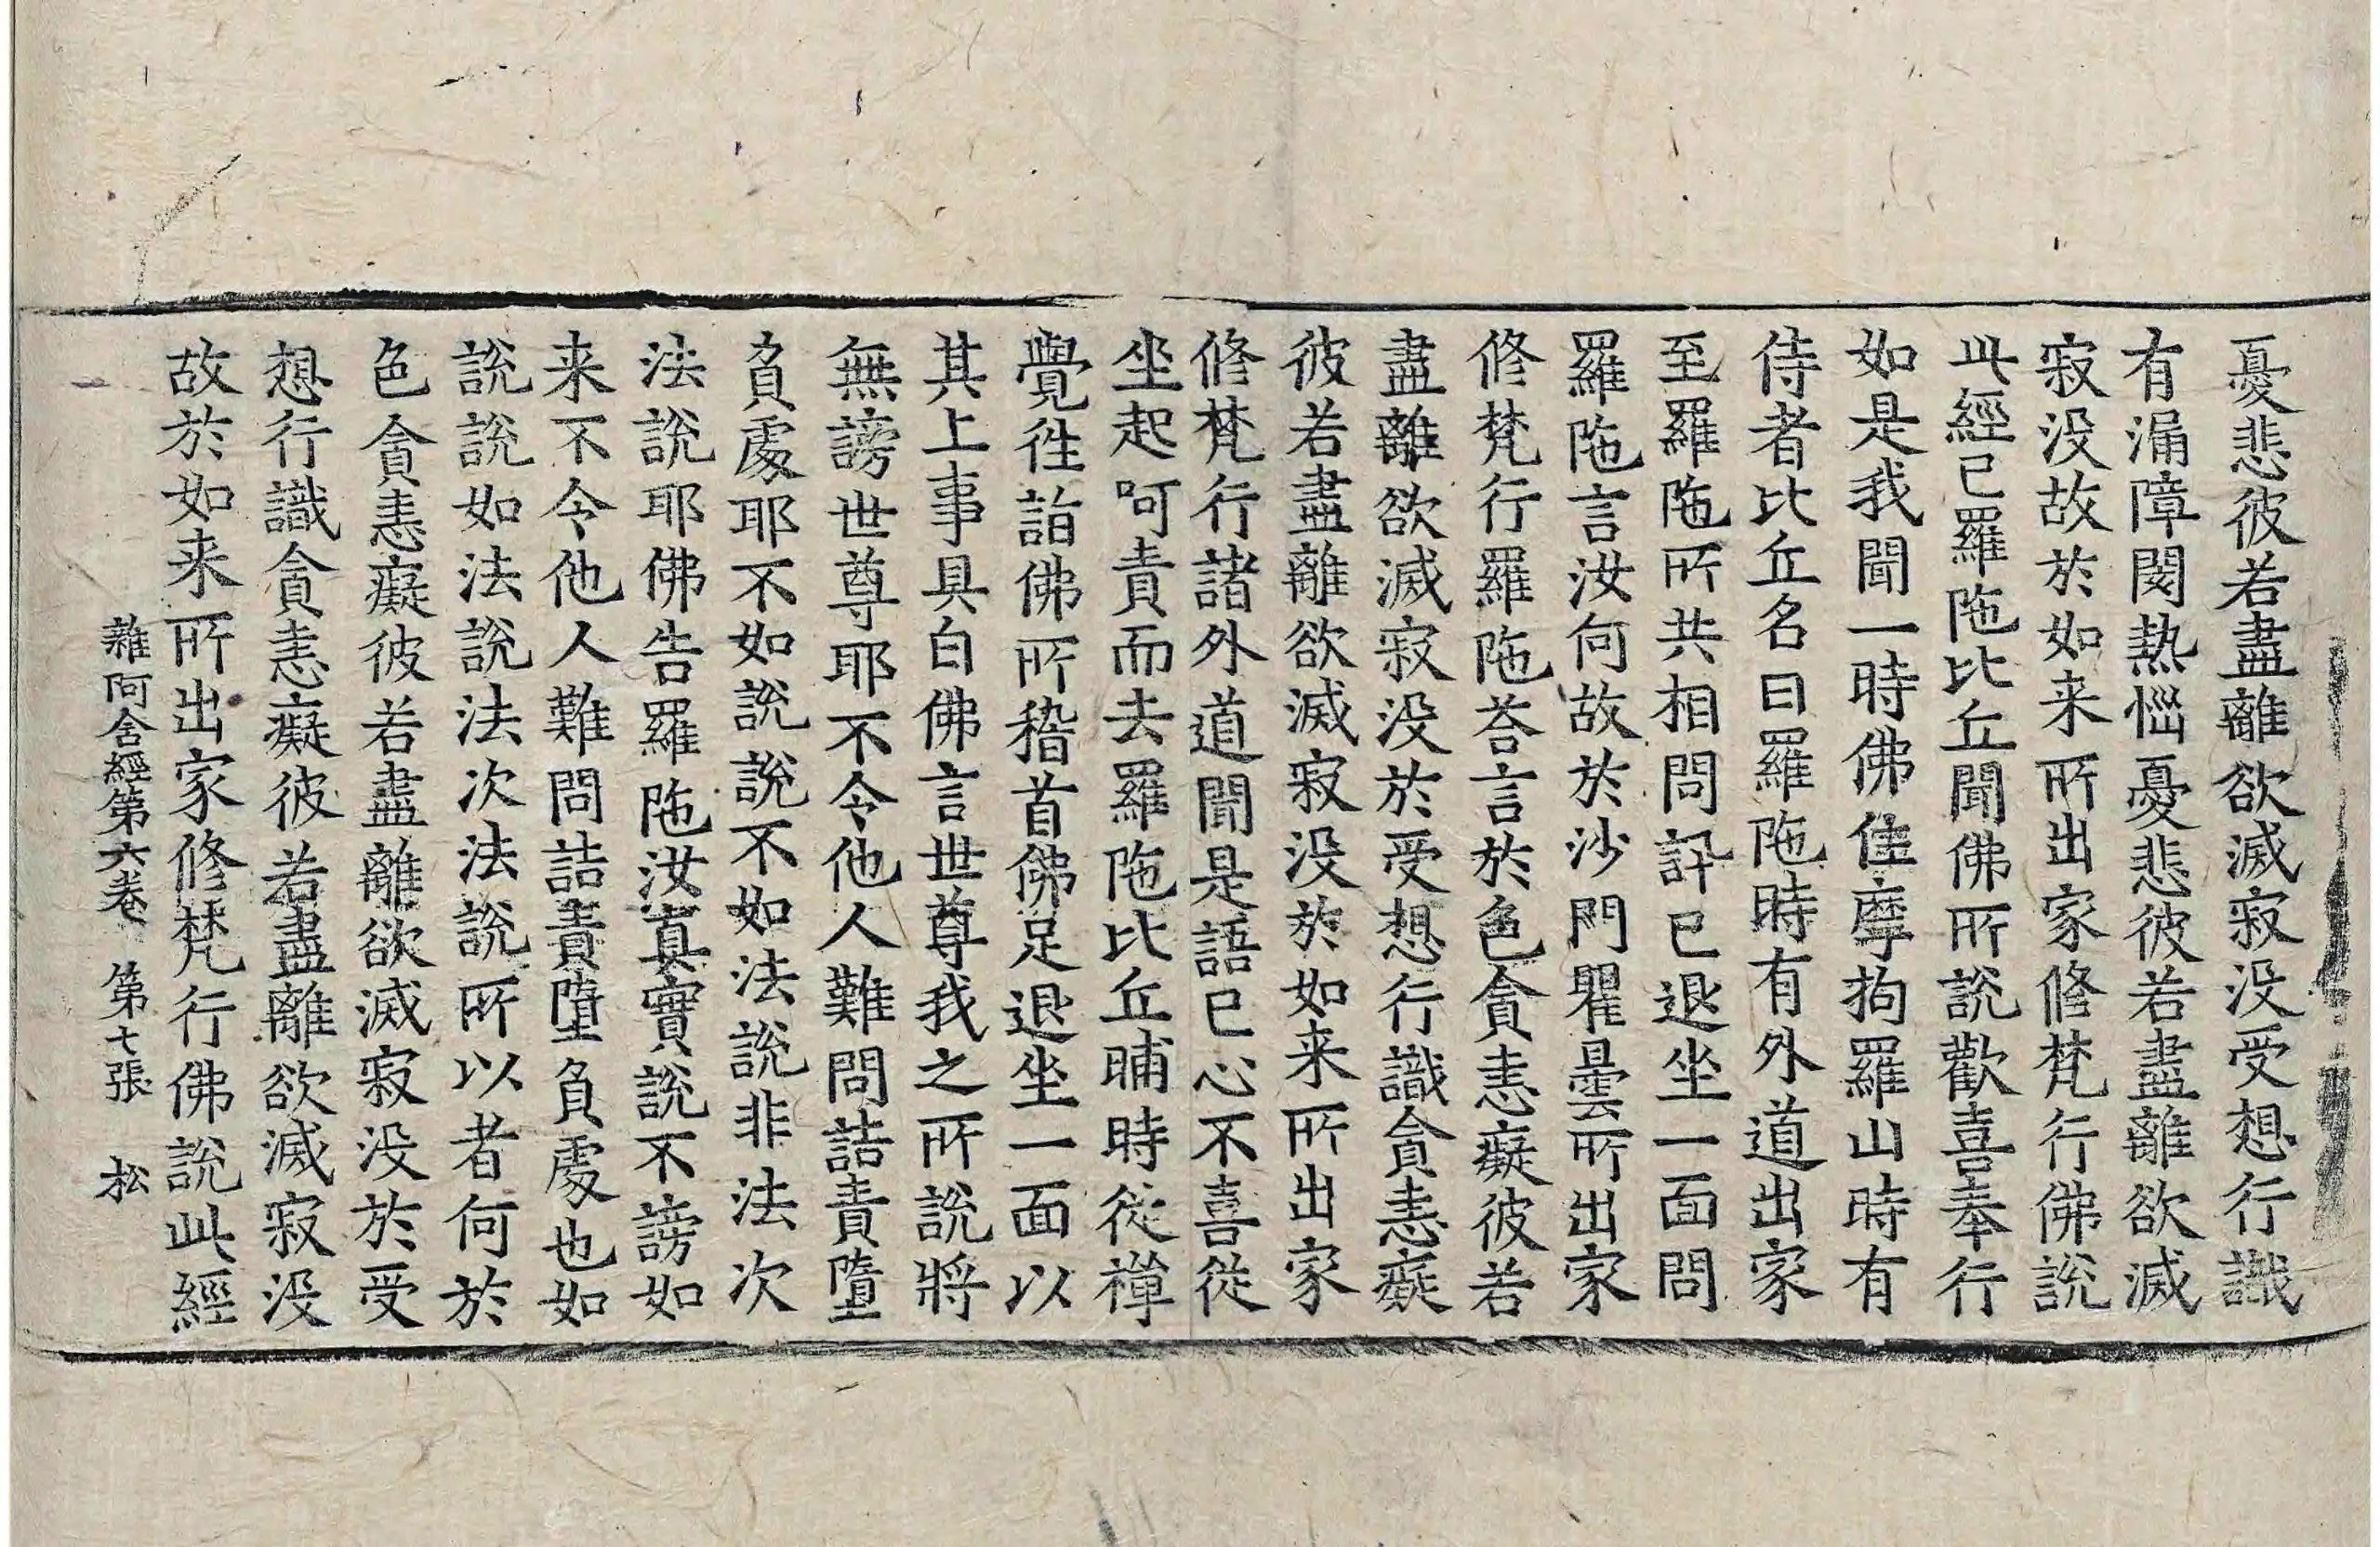 憂悲彼若盡離欲滅寂没受想行識
有漏障閡熱惱憂悲彼若盡離欲滅
寂没故於如来所出家修梵行佛說
此經已羅陁比丘聞佛所說歡喜奉行
如是我聞一時佛住摩拘羅山時有
侍者比丘名曰羅陁時有外道出家
至羅陁所共相問訊已退坐一面問
羅陁言汝何故於沙門瞿曇所出家
修梵行羅陁荅言於色貪恚癡彼若
盡離欲滅寂没於受想行識貪恚癡
彼若盡離欲滅寂没於如来所出家
修梵行諸外道聞是語已心不喜從
坐起呵責而去羅陁比丘晡時從禪
覺徃詣佛所稽首佛足退坐一面以
其上事具白佛言世尊我之所說將
無謗世尊耶不令他人難問詰責墮
負處耶不如說說不如法說非法次
法說耶佛告羅陁汝真實說不謗如
来不令他人難問詰責墮負處也如
說說如法說法次法說所以者何於
色貪恚癡彼若盡離欲滅寂没於受
想行識貪恚癡彼若盡離欲滅寂没
故於如来所出家修梵行佛說此經
雜阿含經第六卷 第七張 松